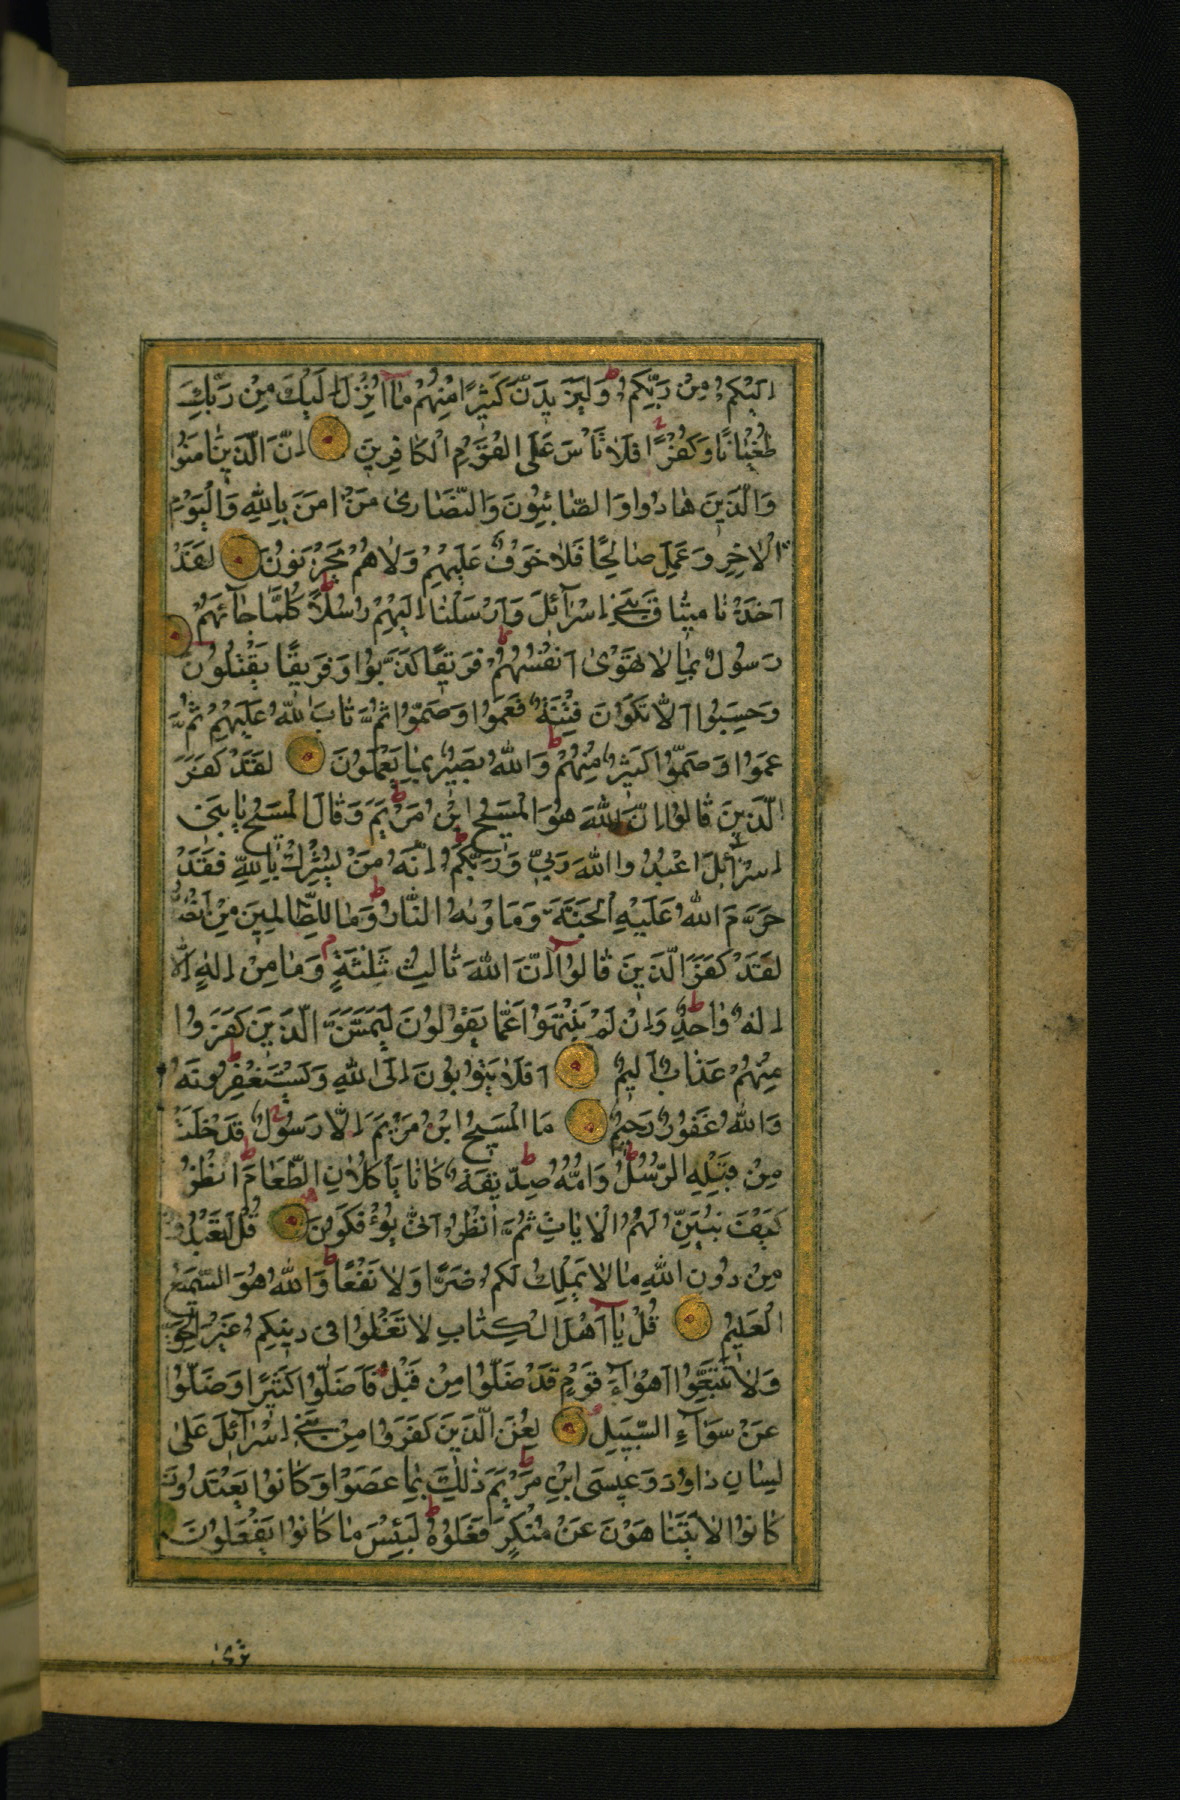 اِلَيْكُمْ مِنْ رَبِّكُمْ وَلَيَزِيدَنَّ كَثِيرًا مِنْهُمْ مَا اُنْزِلَ اِلَيْكَ مِنْ رَبِّكَ
طُغْيَانًا وَكُفْرًا فَلَا تَأْسَ عَلَى الْقَوْمِ الْكَافِرِينَ اِنَّ الَّذِينَ اٰمَنُوا
وَالَّذِينَ هَادُوا وَالصَّابِئُونَ وَالنَّصَارٰى مَنْ اٰمَنَ بِاللّٰهِ وَالْيَوْمِ
الْاٰخِرِ وَعَمِلَ صَالِحًا فَلَا خَوْفٌ عَلَيْهِمْ وَلَا هُمْ يَحْزَنُونَ لَقَدْ
اَخَذْنَا مِيثَاقَ بَنِي اِسْرَآئِلَ وَاَرْسَلْنَا اِلَيْهِمْ رُسُلًا كُلَّمَا جَآئَهُمْ
رَسُولٌ بِمَا لَا تَهْوٰى اَنْفُسُهُمْ فَرِيقًا كَذَّبُوا وَفَرِيقًا يَقْتُلُونَ
وَحَسِبُوا اَلَّا تَكُونَ فِتْنَةٌ فَعَمُوا وَصَمُّوا ثُمَّ تَابَ اللّٰهُ عَلَيْهِمْ ثُمَّ
عَمُوا وَصَمُّوا كَثِيرٌ مِنْهُمْ وَاللّٰهُ بَصِيرٌ بِمَا يَعْمَلُونَ لَقَدْ كَفَرَ
الَّذِينَ قَالُوا اِنَّ اللّٰهَ هُوَ الْمَسِيحُ ابْنُ مَرْيَمَ وَقَالَ الْمَسِيحُ يَا بَنِي
اِسْرَآئِلَ اعْبُدُوا اللّٰهَ رَبِّي وَرَبَّكُمْ اِنَّهُ مَنْ يُشْرِكْ بِاللّٰهِ فَقَدْ
حَرَّمَ اللّٰهُ عَلَيْهِ الْجَنَّةَ وَمَاوٰيهُ النَّارُ وَمَا لِلظَّالِمِينَ مِنْ اَنْصَارٍ
لَقَدْ كَفَرَ الَّذِينَ قَالُوا اِنَّ اللّٰهَ ثَالِثُ ثَلٰثَةٍ وَمَا مِنْ اِلٰهٍ اِلَّا
اِلٰهٌ وَاحِدٌ وَاِنْ لَمْ يَنْتَهُوا عَمَّا يَقُولُونَ لَيَمَسَّنَّ الَّذِينَ كَفَرُوا
مِنْهُمْ عَذَابٌ اَلِيمٌ اَفَلَا يَتُوبُونَ اِلَى اللّٰهِ وَيَسْتَغْفِرُونَهُ
وَاللّٰهُ غَفُورٌ رَحِيمٌ مَا الْمَسِيحُ ابْنُ مَرْيَمَ اِلَّا رَسُولٌ قَدْ خَلَتْ
مِنْ قَبْلِهِ الرُّسُلُ وَاُمُّهُ صِدِّيقَةٌ كَانَا يَأْكُلَانِ الطَّعَامَ اُنْظُرْ
كَيْفَ نُبَيِّنُ لَهُمُ الْاٰيَاتِ ثُمَّ انْظُرْ اَنّٰى يُؤْفَكُونَ قُلْ اَتَعْبُدُونَ
مِنْ دُونِ اللّٰهِ مَا لَا يَمْلِكُ لَكُمْ ضَرًّا وَلَا نَفْعًا وَاللّٰهُ هُوَ السَّمِيعُ
الْعَلِيمُ قُلْ يَا اَهْلَ الْكِتَابِ لَا تَغْلُوا فِي دِينِكُمْ غَيْرَ الْحَقِّ
وَلَا تَتَّبِعُوا اَهْوَآءَ قَوْمٍ قَدْ ضَلُّوا مِنْ قَبْلُ وَاَضَلُّوا كَثِيرًا وَضَلُّوا
عَنْ سَوَآءِ السَّبِيلِ لُعِنَ الَّذِينَ كَفَرُوا مِنْ بَنِي اِسْرَآئِلَ عَلٰى
لِسَانِ دَاوُدَ وَعِيسَى ابْنِ مَرْيَمَ ذٰلِكَ بِمَا عَصَوْا وَكَانُوا يَعْتَدُونَ
كَانُوا لَا يَتَنَاهَوْنَ عَنْ مُنْكَرٍ فَعَلُوهُ لَبِئْسَ مَا كَانُوا يَفْعَلُونَ
تَرٰى